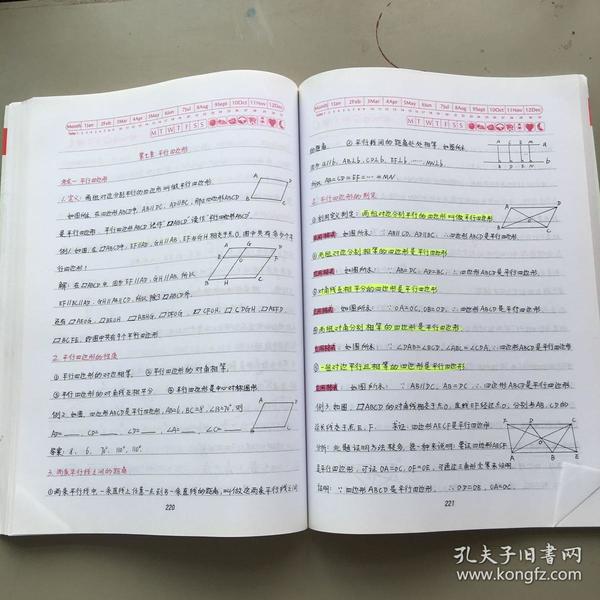 Month 1Jan 2Feb 3Mar 4Apr 5May 6Jun 7Jul 8Aug 9Sept 10Oct 11Nov 12Dec
M T W T F S S
第七章 平行四边形
考点一 平行四边形
1.定义：两组对边分别平行的四边形叫做平行四边形.
如图所示，在四边形ABCD中，AB∥DC，AD∥BC，那么四边形ABCD
是平行四边形，平行四边形ABCD记作"▱ABCD"读作"平行四边形ABCD".
例1.如图，在▱ABCD中，EF∥AD，GH∥AB，EF与GH相交于点O，图中共有多少个
平行四边形？
解：在▱ABCD中，因为EF∥AD，GH∥AB，所以
EF∥BC∥AD，GH∥AB∥CD，所以除了▱ABCD外，
2.平行四边形的性质
①平行四边形的对边相等. ②平行四边形的对角相等.
③平行四边形的对角线互相平分. ④平行四边形是中心对称图形.
例2.如图，四边形ABCD是平行四边形，AB=6，BC=8，∠B=70°，则
AD=___，CD=___，∠D=___，∠A=___，∠C=___
答案：8. 6. 70° 110° 110°.
3.两条平行线之间的距离
①两条平行线中，一条直线上任意一点到另一条直线的距离，叫做这两条平行线之间
220
Month 1Jan 2Feb 3Mar 4Apr 5May 6Jun 7Jul 8Aug 9Sept 10Oct 11Nov 12Dec
M T W T F S S
的距离. ②平行线间的距离处处相等. 如图所
示，a∥b，AB⊥b，CD⊥b，EF⊥b，……，MN⊥b，
所以AB=CD=EF=…=MN.
二.平行四边形的判定
①利用定义判定：两组对边分别平行的四边形叫做平行四边形
如图所示：∵AB∥CD，AD∥BC，∴四边形ABCD是平行四边形.
②两组对边分别相等的四边形是平行四边形
如图所示：∵AB=DC，AD=BC，∴四边形ABCD是平行四边形.
③对角线互相平分的四边形是平行四边形
如图所示：∵OA=OC，OB=OD，∴四边形ABCD是平行四边形.
④两组对角分别相等的四边形是平行四边形
如图所示：∵∠DAB=∠BCD，∠ABC=∠CDA，∴四边形ABCD是平行四边形
⑤一组对边平行且相等的四边形是平行四边形
如图所示：∵AB∥DC，AB=DC，∴四边形ABCD是平行四边形.
例3.如图，▱ABCD的对角线相交于点O，直线EF经过点O，分别与AB，CD的
延长线交于点E，F. 求证：四边形AECF是平行四边形.
是平行四边形，可证OA=OC，OF=OE，可通过三角形全等来证明.
证明：∵四边形ABCD是平行四边形，∴OD=OB，OA=OC.
221
孔夫子旧书网
www.kongfz.com